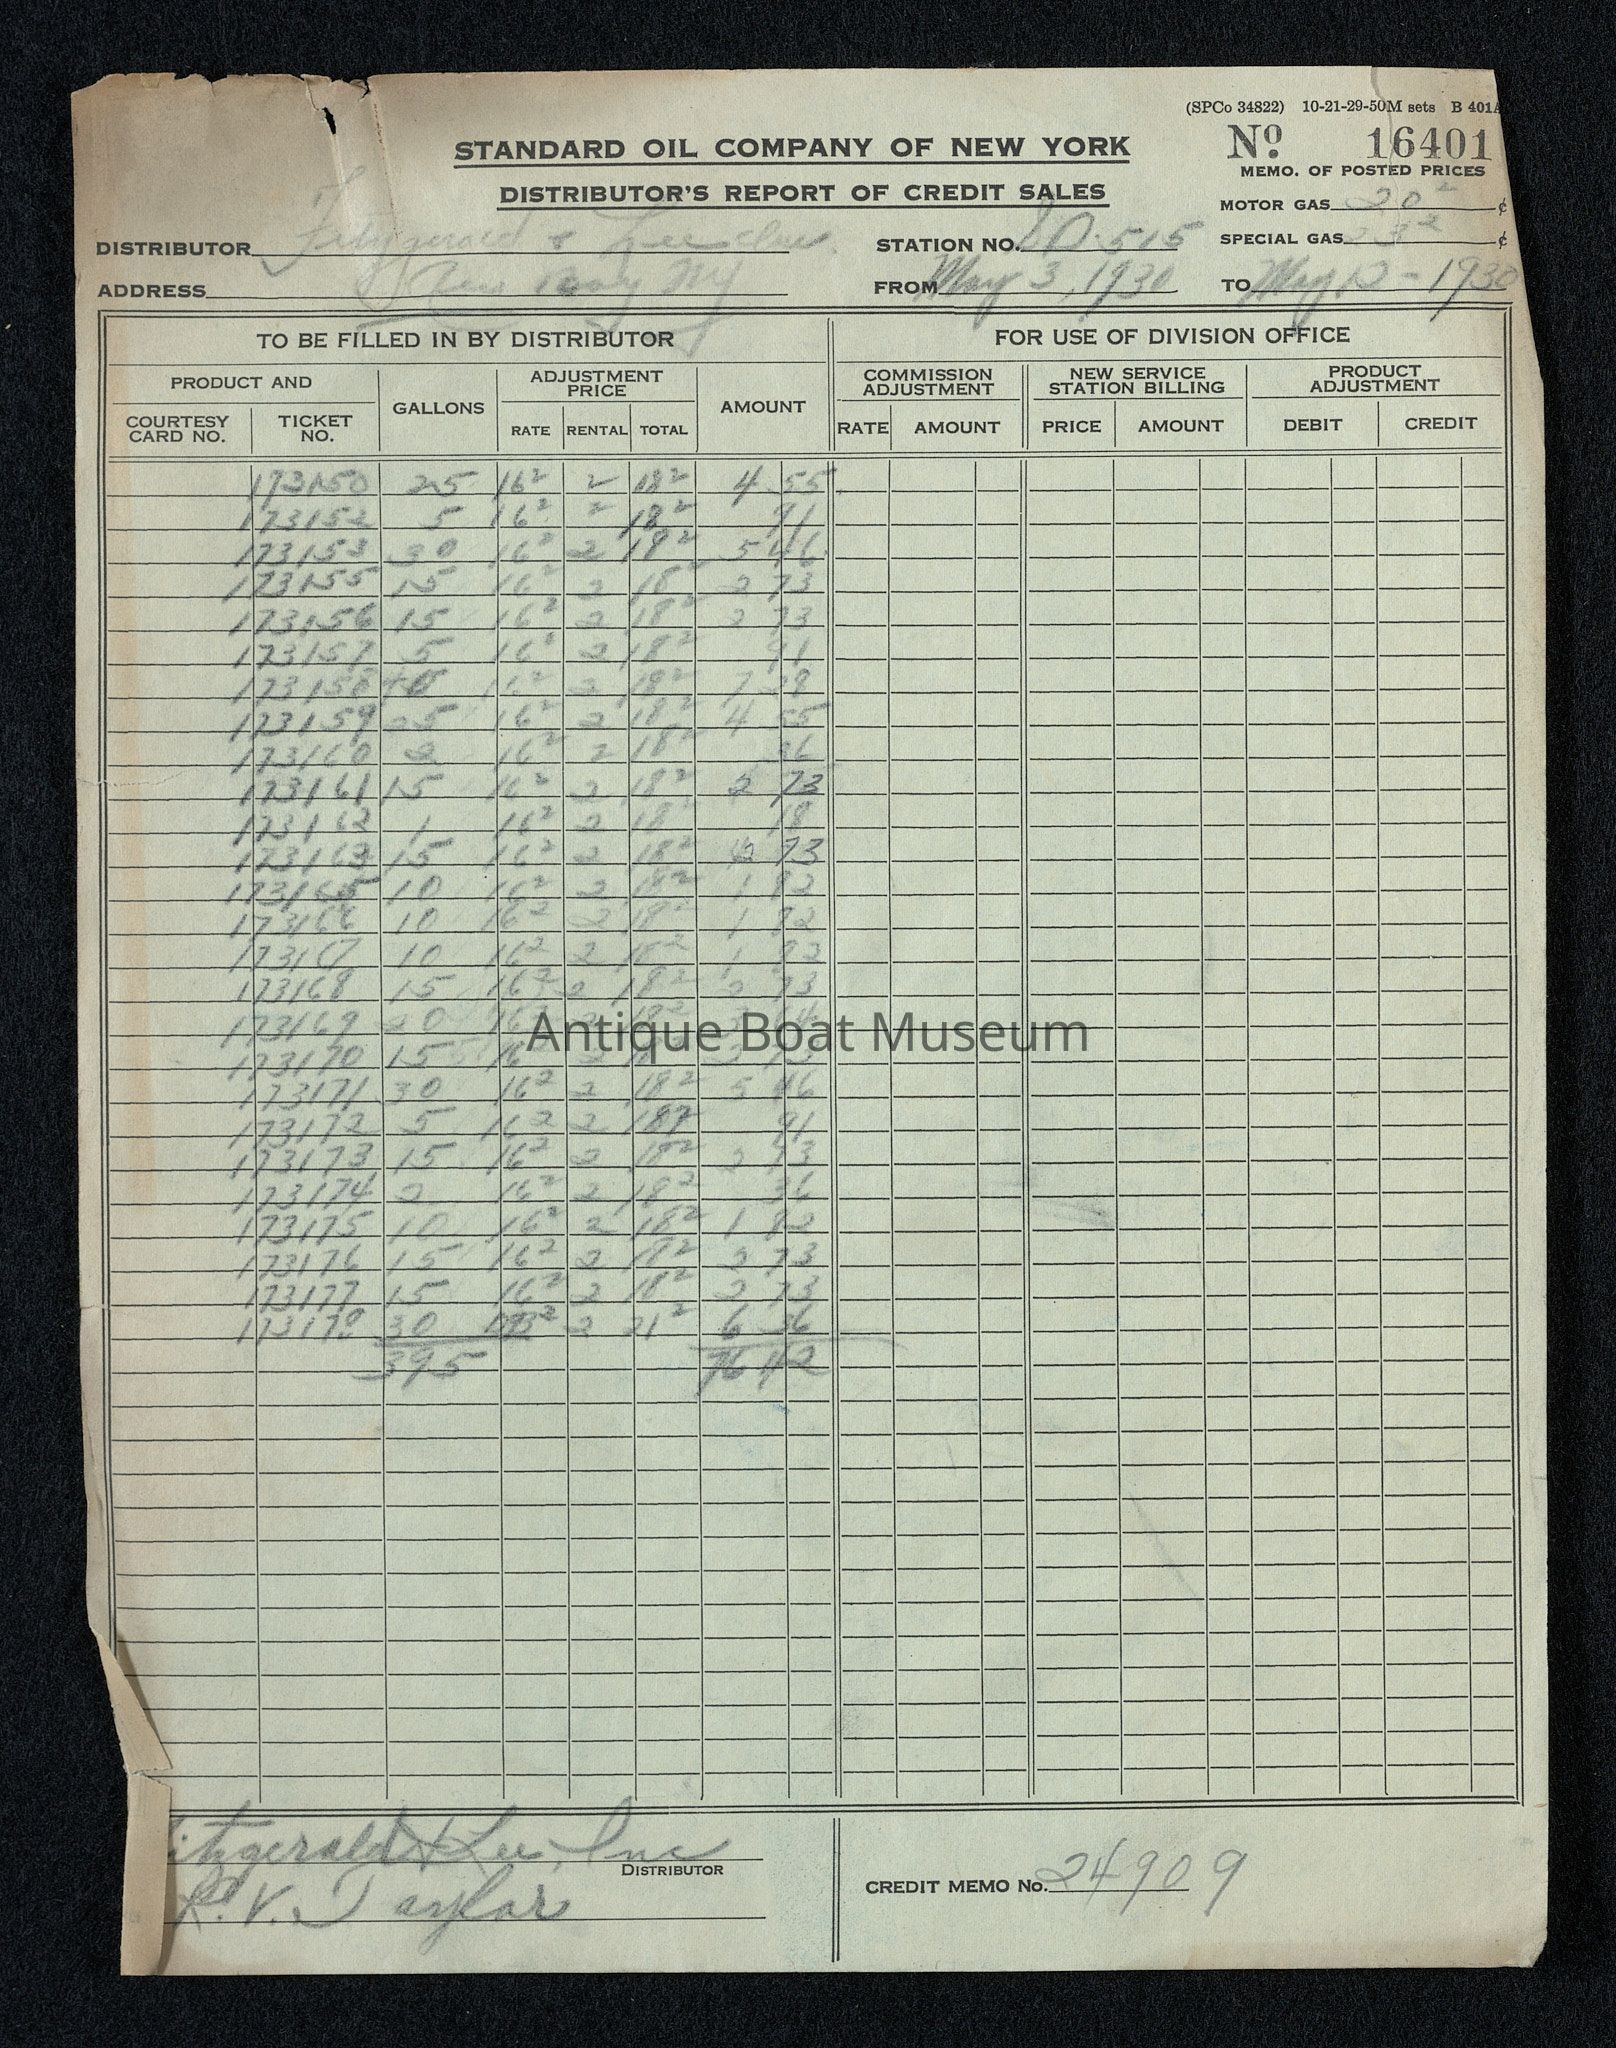 (SPCo 34822) 10-21-29-50M sets B 401A
No. 16401
STANDARD OIL COMPANY OF NEW YORK
MEMO. OF POSTED PRICES
DISTRIBUTOR'S REPORT OF CREDIT SALES
MOTOR GAS 20² ¢
DISTRIBUTOR Fitzgerald & Lee Inc. STATION NO. SD-515 SPECIAL GAS 23² ¢
ADDRESS Alex Bay NY FROM May 3, 1930 TO May 12 - 1930
TO BE FILLED IN BY DISTRIBUTOR FOR USE OF DIVISION OFFICE
PRODUCT AND GALLONS ADJUSTMENT PRICE AMOUNT COMMISSION ADJUSTMENT NEW SERVICE STATION BILLING PRODUCT ADJUSTMENT
COURTESY CARD NO. TICKET NO. RATE RENTAL TOTAL RATE AMOUNT PRICE AMOUNT DEBIT CREDIT
173150 25 16² 2 18² 4 55
173152 5 16² 2 18² 91
173153 30 16² 2 18² 5 46
173155 15 16² 2 18² 2 73
173156 15 16² 2 18² 2 73
173157 5 16² 2 18² 91
173158 40 16² 2 18² 7 28
173159 25 16² 2 18² 4 55
173160 2 16² 2 18² 36
173161 15 16² 2 18² 2 73
173162 1 16² 2 18² 18
173163 15 16² 2 18² 2 73
173165 10 16² 2 18² 1 82
173166 10 16² 2 18² 1 82
173167 10 16² 2 18² 1 82
173168 15 16² 2 18² 2 73
173169 20 16² 2 18² 3 64
Antique Boat Museum
173170 15 16² 2 18² 2 73
173171 30 16² 2 18² 5 46
173172 5 16² 2 18² 91
173173 15 16² 2 18² 2 73
173174 2 16² 2 18² 36
173175 10 16² 2 18² 1 82
173176 15 16² 2 18² 2 73
173177 15 16² 2 18² 2 73
30 2 21² 6 36
395 76 42
Fitzgerald & Lee, Inc
DISTRIBUTOR
R. V. Taylor
CREDIT MEMO No. 24909